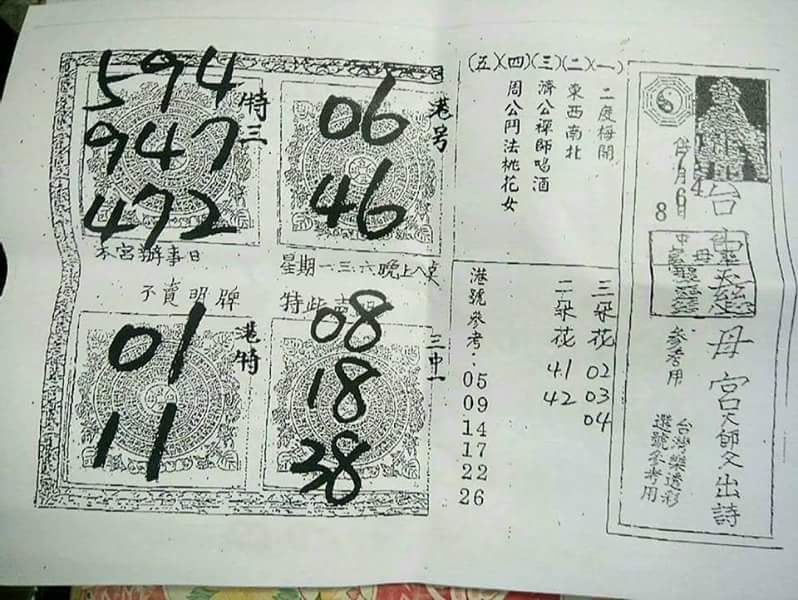 母宮天師父出詩
參考用
台灣樂透彩
選號參考用
(一) 二度梅開
(二) 東西南北
(三) 濟公禪師喝酒
(四) 周公鬥法桃花女
(五)
三朵花 02 03 04
二朵花 41 42
港號參考: 05 09 14 17 22 26
港号
06
46
特三
594
947
472
本宮辦事日
星期一三六晚上八
不賣明牌
三中一
08
18
38
港特
01
11